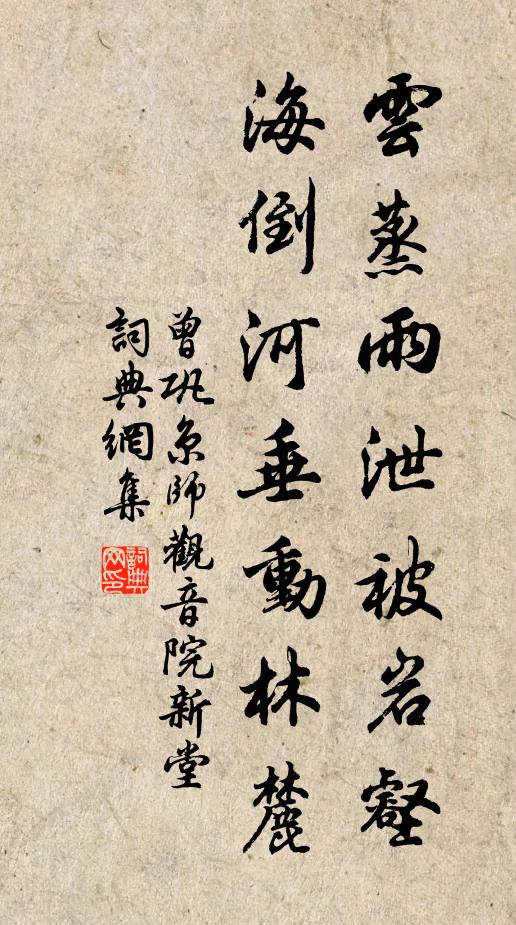 雲蒸雨泄被岩壑
海倒河垂動林麓
曾巩京師觀音院新堂
詞典網集
詞典
网印